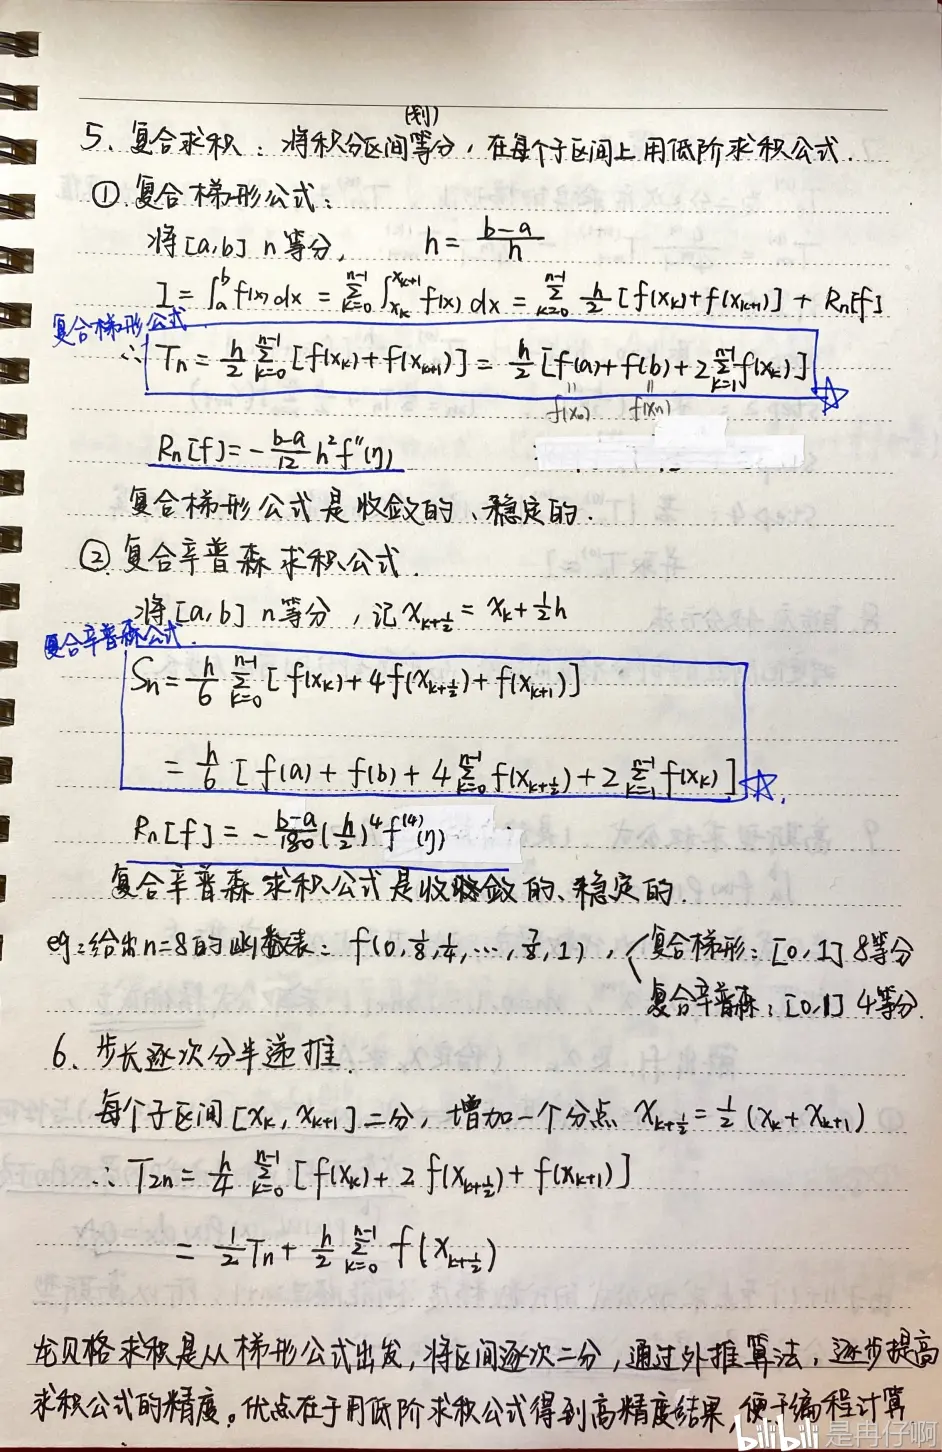 (划)
5、复合求积：将积分区间等分，在每个子区间上用低阶求积公式.
① 复合梯形公式：
将[a,b] n等分, h = (b-a)/n
I = ∫_a^b f(x) dx = Σ_{k=0}^{n-1} ∫_{x_k}^{x_{k+1}} f(x) dx = Σ_{k=0}^{n-1} h/2 [f(x_k)+f(x_{k+1})] + Rn[f]
复合梯形公式
∴ Tn = h/2 Σ_{k=0}^{n-1} [f(x_k)+f(x_{k+1})] = h/2 [f(a)+f(b)+2Σ_{k=1}^{n-1} f(x_k)] ☆
= f(x₀) = f(xn)
Rn[f] = -(b-a)/12 h² f''(η)
复合梯形公式是收敛的、稳定的.
② 复合辛普森求积公式.
将[a,b] n等分，记 x_{k+1/2} = x_k + 1/2 h
复合辛普森公式.
Sn = h/6 Σ_{k=0}^{n-1} [f(x_k)+4f(x_{k+1/2})+f(x_{k+1})]
= h/6 [f(a)+f(b)+4Σ_{k=0}^{n-1} f(x_{k+1/2})+2Σ_{k=1}^{n-1} f(x_k)] ☆.
Rn[f] = -(b-a)/180 (h/2)⁴ f⁽⁴⁾(η)
复合辛普森求积公式是收敛的、稳定的.
eg：给出n=8的函数表：f(0, 1/8, 1/4, ⋯, 7/8, 1)，〈复合梯形：[0,1] 8等分
复合辛普森：[0,1] 4等分.
6、步长逐次分半递推.
每个子区间[x_k, x_{k+1}]二分，增加一个分点 x_{k+1/2} = 1/2 (x_k+x_{k+1})
∴ T_{2n} = h/4 Σ_{k=0}^{n-1} [f(x_k)+2f(x_{k+1/2})+f(x_{k+1})]
= 1/2 Tn + h/2 Σ_{k=0}^{n-1} f(x_{k+1/2})
龙贝格求积是从梯形公式出发，将区间逐次二分，通过外推算法，逐步提高
求积公式的精度。优点在于用低阶求积公式得到高精度结果，便于编程计算
bilibili 是冉仔啊